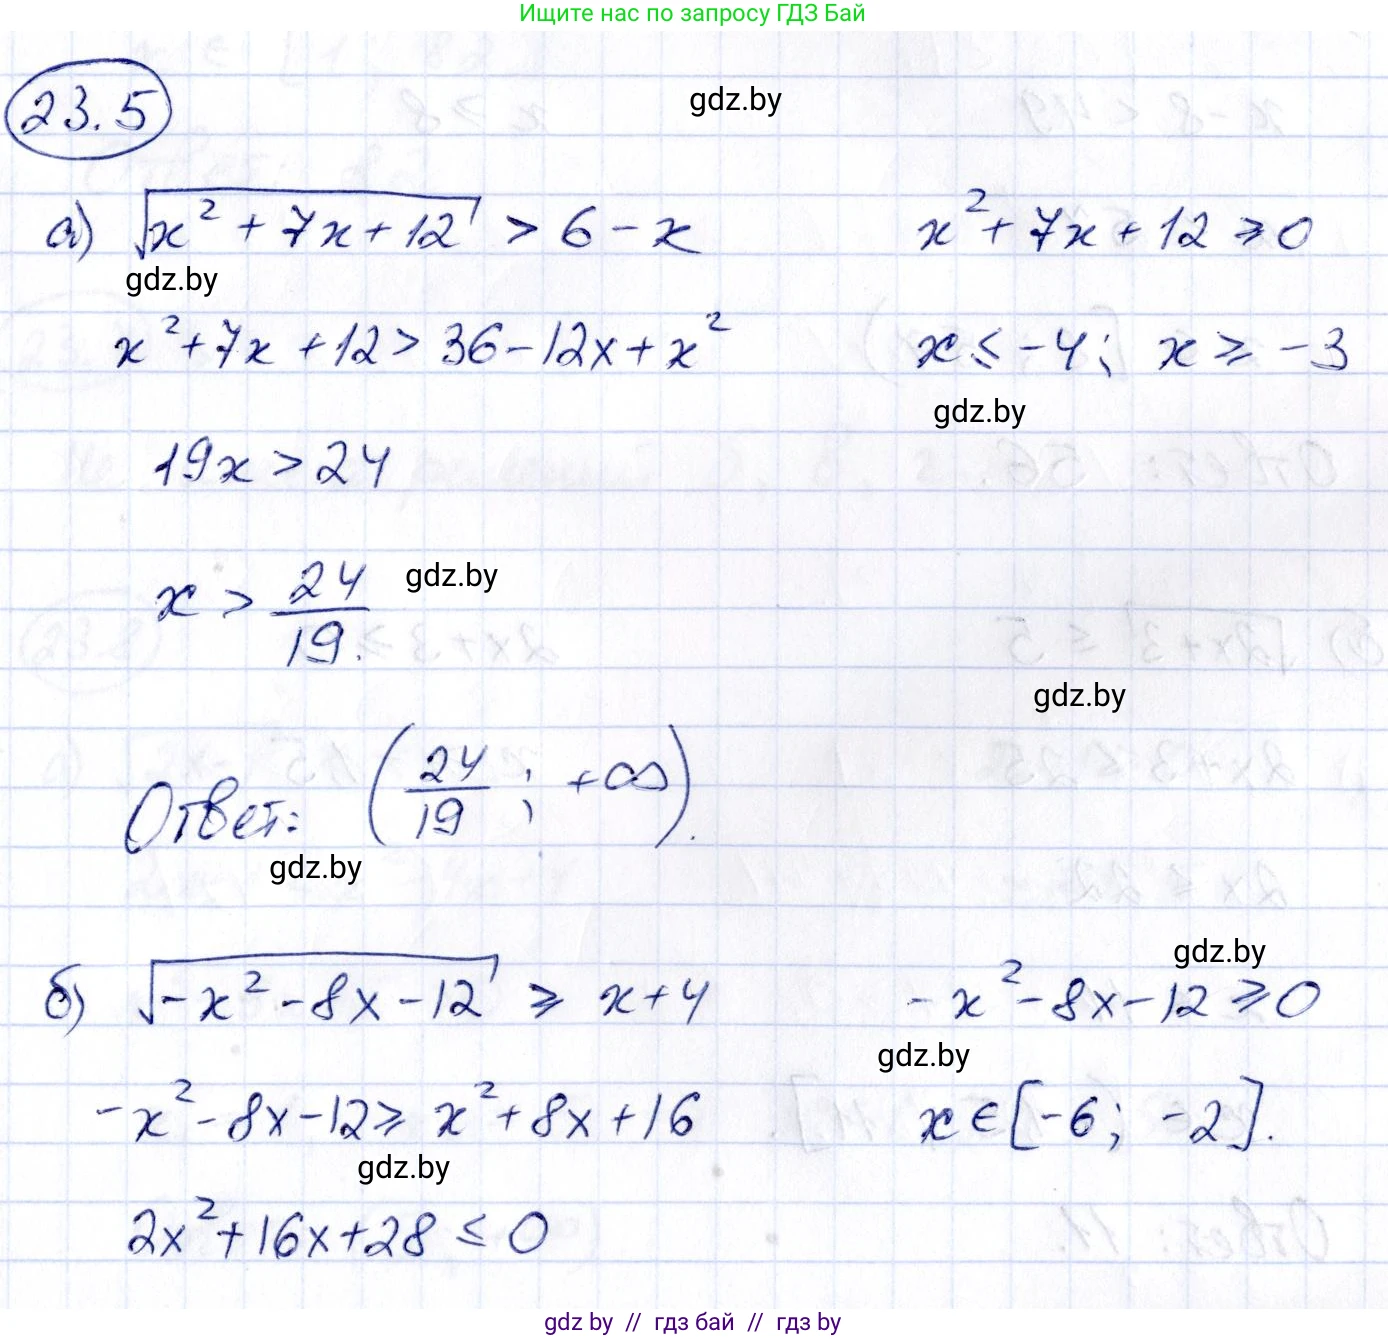 Ищите нас по запросу ГДЗ Бай
23.5
gdz.by
а) √(x² + 7x + 12) > 6 - x
x² + 7x + 12 ≥ 0
gdz.by
x² + 7x + 12 > 36 - 12x + x²
x ≤ -4; x ≥ -3
gdz.by
19x > 24
x > 24/19.
gdz.by
gdz.by
Ответ: (24/19; +∞).
gdz.by
gdz.by
б) √(-x² - 8x - 12) ≥ x + 4
-x² - 8x - 12 ≥ 0
gdz.by
-x² - 8x - 12 ≥ x² + 8x + 16
x ∈ [-6; -2].
gdz.by
2x² + 16x + 28 ≤ 0
gdz by // гдз бай // гдз by